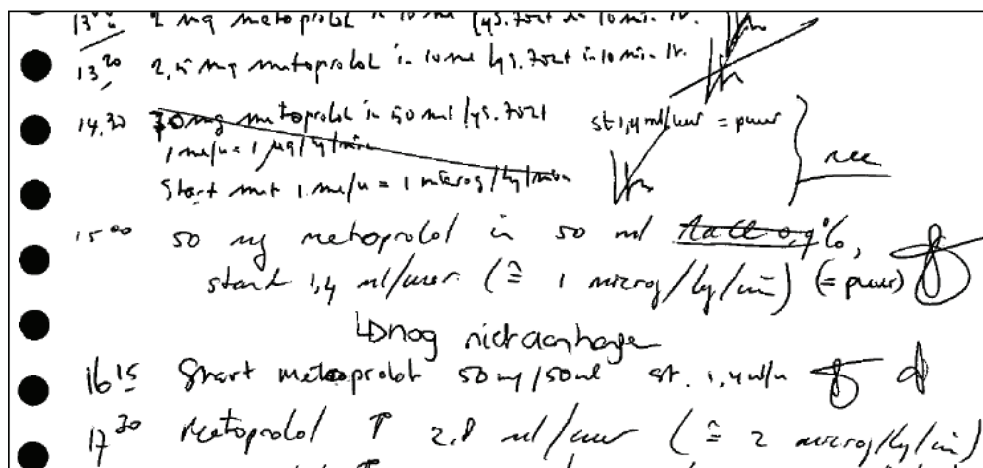 13 2 mg metoprolol in 10 ml lys. zout in 10 min. IV.
13 20 2,5 mg metoprolol in 10 ml lys. zout in 10 min. IV.
14.30 50 mg metoprolol in 50 ml lys. zout st 1,4 ml/uur = puur
1 ml/u = 1 µg/kg/min
Start met 1 ml/u = 1 microg/kg/min
15 00 50 mg metoprolol in 50 ml NaCl 0,9%,
start 1,4 ml/uur (≙ 1 microg/kg/min) (= puur)
↳ nog niet aanhangen
16 15 Start metoprolol 50 mg/50ml st. 1,4 ml/u
17 30 Metoprolol ↑ 2.8 ml/uur (≙ 2 microg/kg/min)